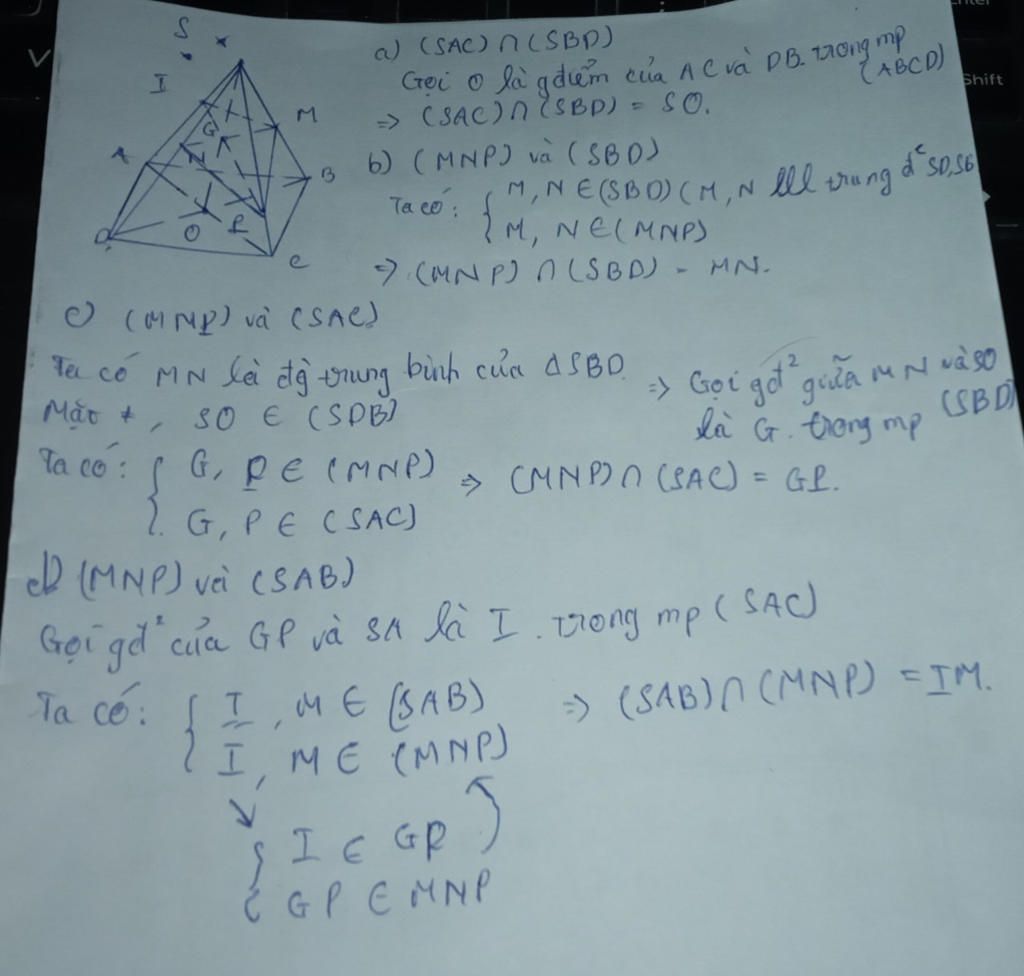 S
I
M
G
A
N
B
O
P
D
C
a) (SAC) ∩ (SBD)
Gọi O là gđiểm của AC và DB trong mp (ABCD)
=> (SAC) ∩ (SBD) = SO.
b) (MNP) và (SBD)
Ta có: { M, N ∈ (SBD) (M, N lll trung đ² SD, SB
M, N ∈ (MNP)
=> (MNP) ∩ (SBD) = MN.
c) (MNP) và (SAC)
Ta có MN là đg trung bình của ΔSBD.
Mặt ≠, SO ∈ (SDB)
=> Gọi gđ² giữa MN và SO
là G. trong mp (SBD)
Ta có: { G, P ∈ (MNP)
G, P ∈ (SAC)
=> (MNP) ∩ (SAC) = GP.
d) (MNP) và (SAB)
Gọi gđ² của GP và SA là I. trong mp (SAC)
Ta có: { I, M ∈ (SAB)
I, M ∈ (MNP)
=> (SAB) ∩ (MNP) = IM.
{ I ∈ GP
GP ∈ MNP
Shift